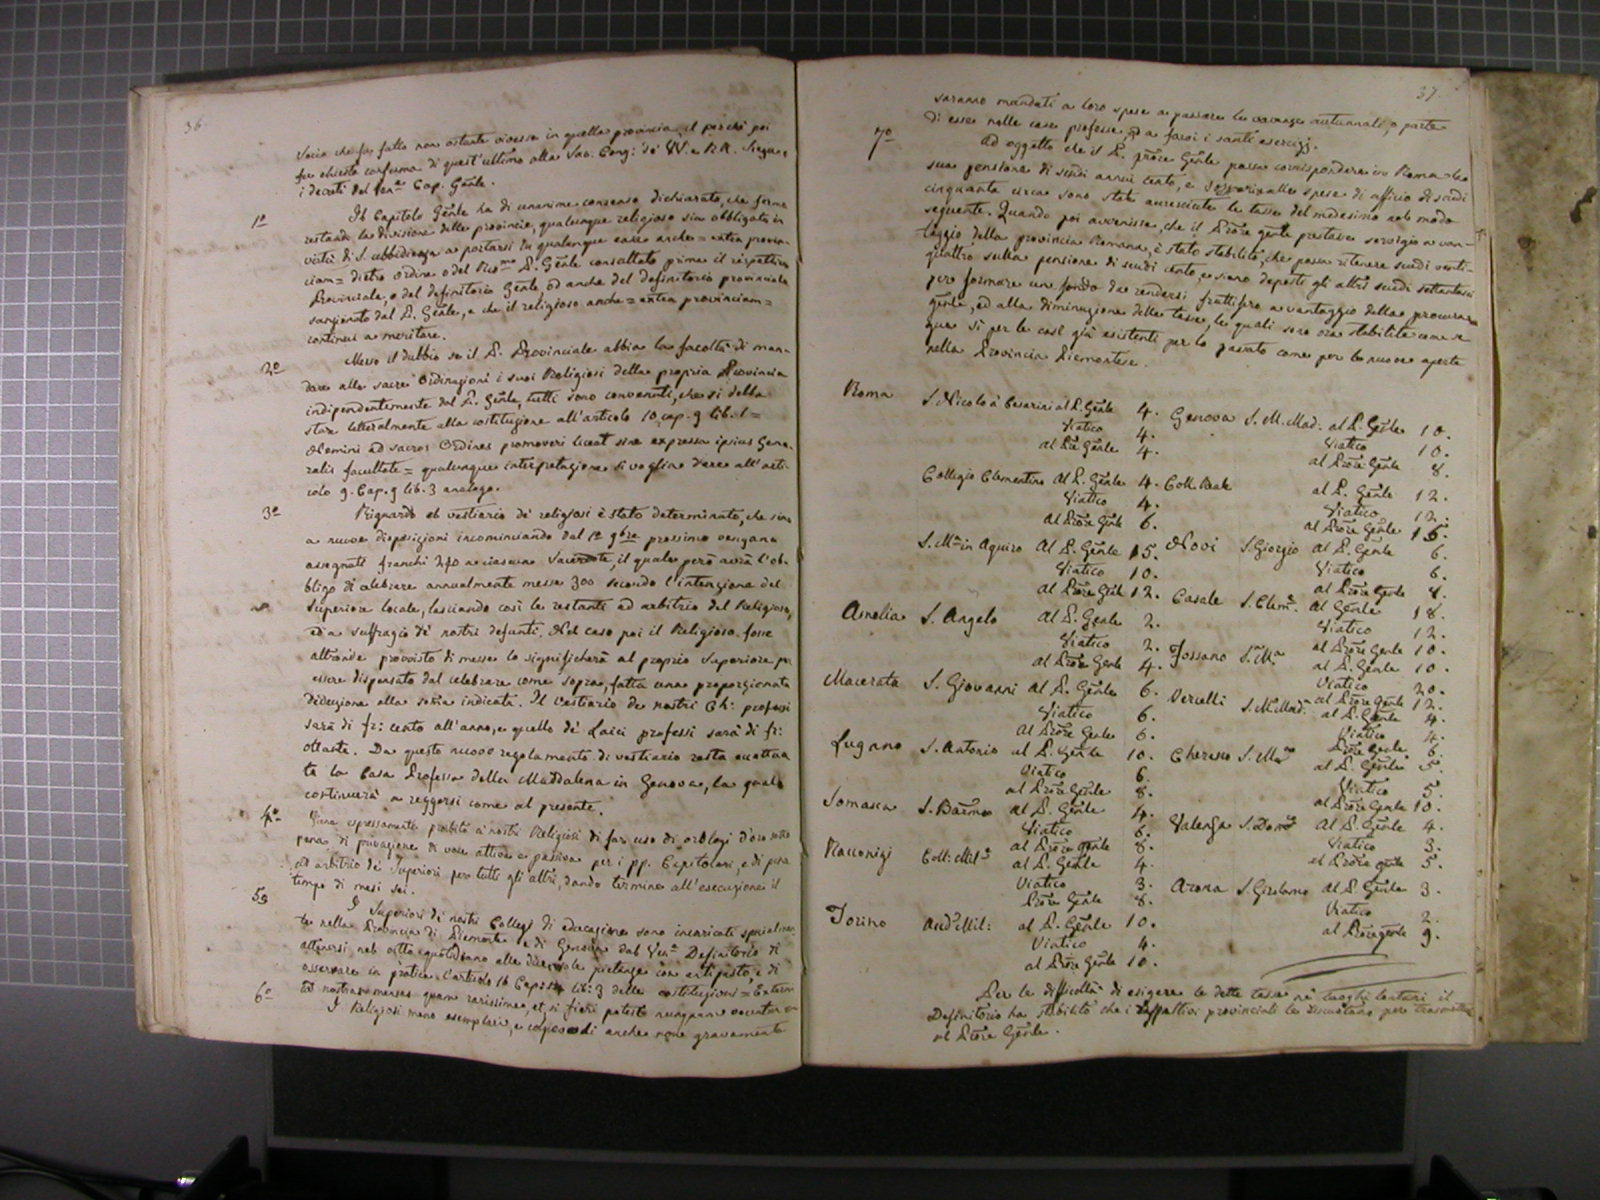 36.
Socio che fu, fatto non ostante vivesse in quella provincia, il perchè poi
fu chiesta conferma di quest'ultimo alla Sac. Cong: de' VV. e RR.
i decreti del Ven.e Cap. Gen̄le.
1º
Il Capitolo Gen̄le ha di unanime consenso dichiarato, che ferma
restando la divisione delle provincie, qualunque religioso sia obbligato in
virtù di S. ubbidienza a portarsi in qualunque casa anche = extra provin-
ciam = dietro ordine o del P. Gen̄le consultato prima il rispettivo
Provinciale, o del definitorio Gen̄le, od anche del definitorio provinciale
sanzionato dal P. Gen̄le, e che il religioso anche = extra provinciam =
continui a meritare.
2º
Messo il dubbio se il P. Provinciale abbia la facoltà di man-
dare alle sacre Ordinazioni i suoi Religiosi della propria Provincia
indipendentemente dal P. Gen̄le, tutti sono convenuti, che si debba
stare letteralmente alla costituzione all'articolo 10, cap. 9 lib. 1 =
Nemini ad sacros Ordines promoveri liceat sine expressa ipsius Gene-
ralis facultate = qualunque interpretazione si voglia dare all'arti-
colo 9. Cap. 9 lib. 3 analogo.
3º
Riguardo al vestiario de' religiosi è stato determinato, che sino
a nuove disposizioni incominciando dal 1º 9bre prossimo vengano
assegnati franchi 240 a ciascun Sacerdote, il quale però avrà l'ob-
bligo di celebrare annualmente messe 300 secondo l'intenzione del
Superiore locale, lasciando così le restanti ad arbitrio del Religioso,
ed a suffragio de' nostri defunti. Nel caso poi il Religioso fosse
altronde provvisto di messe lo significherà al proprio Superiore per
essere dispensato dal celebrare come sopra, fatta una proporzionata
deduzione alla somma indicata. Il vestiario de' nostri Ch: professi
sarà di fr: cento all'anno, e quello de' Laici professi sarà di fr:
ottanta. Da questo nuovo regolamento di vestiario resta eccettua
ta la Casa Professa della Maddalena in Genova, la quale
continuerà a reggersi come al presente.
4º
Viene espressamente proibito a' nostri Religiosi di far uso di orologi d'oro sotto
pena di privazione di voce attiva e passiva per i pp. Capitolari, e di pena
ad arbitrio de' Superiori per tutti gli altri, dando termine all'esecuzione il
tempo di mesi sei.
5º
I Superiori di nostri Collegj di educazione sono incaricati specialmen-
te nella Provincia di Piemonte e di Genova dal Ven.e Definitorio di
attenersi nel vitto quotidiano alle due sole pietanze con antipasto, e di
osservare in pratica l'articolo 16 Cap. lib: 3 delle costituzioni = Externi
ad nostram mensam quam rarissime, et, si fieri potest nunquam vocentur =
6º
I Religiosi meno esemplari, e capaci di anche non gravemente
37.
saranno mandati a loro spese a passare le vacanze autunnali, o parte
di esse nelle case professe, od a farvi i santi esercizj.
7º
Ad oggetto che il P. Proc̄re Gen̄le possa corrispondere in Roma la
sua pensione di scudi annui cento, e sopperire alle spese di ufficio di scudi
cinquanta circa sono state accresciute le tasse del medesimo nel modo
seguente. Quando poi avvenisse, che il Proc̄re gen̄le prestasse servigio a van-
taggio della provincia Romana, è stato stabilito, che possa ritenere scudi venti-
quattro sulla pensione di scudi cento, e siano deposti gli altri scudi settantasei
per formare un fondo da rendersi fruttifero a vantaggio della procura
gen̄le, ed alla diminuzione delle tasse, le quali sono ora stabilite come se
gue sì per le case già esistenti per lo passato come per le nuove aperte
nella Provincia Piemontese.
Roma S. Nicolò a' Cesarini al P. Gen̄le 4.
Viatico 4.
al Pr̄e Gen̄le 4.
Collegio Clementino Al P. Gen̄le 4.
Viatico 4.
al Proc̄re Gen̄le 6.
S. Mª in Aquiro Al P. Gen̄le 15.
Viatico 10.
al Proc̄re Gen̄le 12.
Amelia S. Angelo Al P. Gen̄le 2.
Viatico 2.
al Proc̄re Gen̄le 4.
Macerata S. Giovanni al P. Gen̄le 6.
Viatico 6.
Al Proc̄re Gen̄le 6.
Lugano S. Antonio al P. Gen̄le 10.
Viatico 6.
al Proc̄re Gen̄le 8.
Somasca S. Barmeo al P. Gen̄le 4.
Viatico 6.
al Proc̄re gen̄le 8.
Racconigi Coll: Mil:e al P. Gen̄le 4.
Viatico 3.
Proc̄re Gen̄le 8.
Torino Acad: Mil: al P. Gen̄le 10.
Viatico 4.
al Proc̄re Gen̄le 10.
Genova S. M. Mad. al P. Gen̄le 10.
Viatico 10.
al Proc̄re Gen̄le 8.
Coll. Reale al P. Gen̄le 12.
Viatico 12.
al Proc̄re Gen̄le 15.
Novi S. Giorgio al P. Gen̄le 6.
Viatico 6.
al Proc̄re Gen̄le 8.
Casale S. Clem.e Al Gen̄le 18.
Viatico 12.
al Proc̄re Gen̄le 10.
Fossano S. Mª al P. Gen̄le 10.
Viatico 20.
al Proc̄re Gen̄le 12.
Vercelli S. M. Mad.a al P. Gen̄le 4.
Viatico 4.
Proc̄re Gen̄le 6.
Cherasco S. Mª al P. Gen̄le 5.
Viatico 5.
al Proc̄re Gen̄le 10.
Valenza S. Dom.o Al P. Gen̄le 4.
Viatico 3.
al Proc̄re gen̄le 5.
Arona S. Girolamo al P. Gen̄le 3.
Viatico 2.
al Proc̄re gen̄le 9.
Per le difficoltà di esigere le dette tasse ne' luoghi lontani il
Definitorio ha stabilito che i rispettivi provinciali le riscuotano per trasmetterle
al Proc̄re Gen̄le.